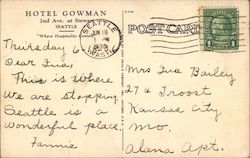 HOTEL GOWMAN
2nd Ave. at Stewart
SEATTLE
"Where Hospitality
SEATTLE
JUN 18
WASH.
POST CARD
1
Thursday
Dear Iva,
This is Where
We are stopping
Seattle is a
wonderful place
Fannie
Mrs Iva Bailey
27 & Troost
Kansas City
Mo.
Alana Apt.